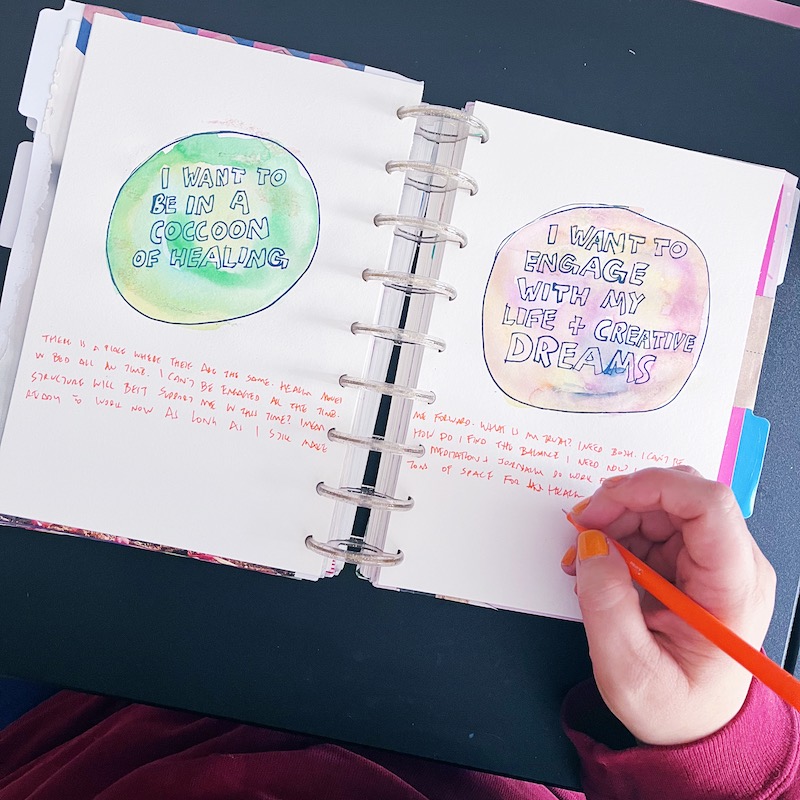 I WANT TO
BE IN A
COCCOON
OF HEALING
THERE IS A PLACE WHERE THESE ARE THE SAME. HEALIN
IN BED ALL AN TIME. I CAN'T BE ENGAGED ALL THE TIME.
STRUCTURE WILL BEST SUPPORT ME IN THIS TIME? I MEAN
TO WORK NOW AS LONG AS I STILL MAKE
I WANT TO
ENGAGE
WITH MY
LIFE + CREATIVE
DREAMS
ME FORWARD. WHAT IS AN TRUTH? I NEED BOTH. I CAN'T BE
HOW DO I FIND THE BALANCE I NEED NOW?
MEDITATIONS JOURNALING DO WORK
TONS OF SPACE FOR HEALIN